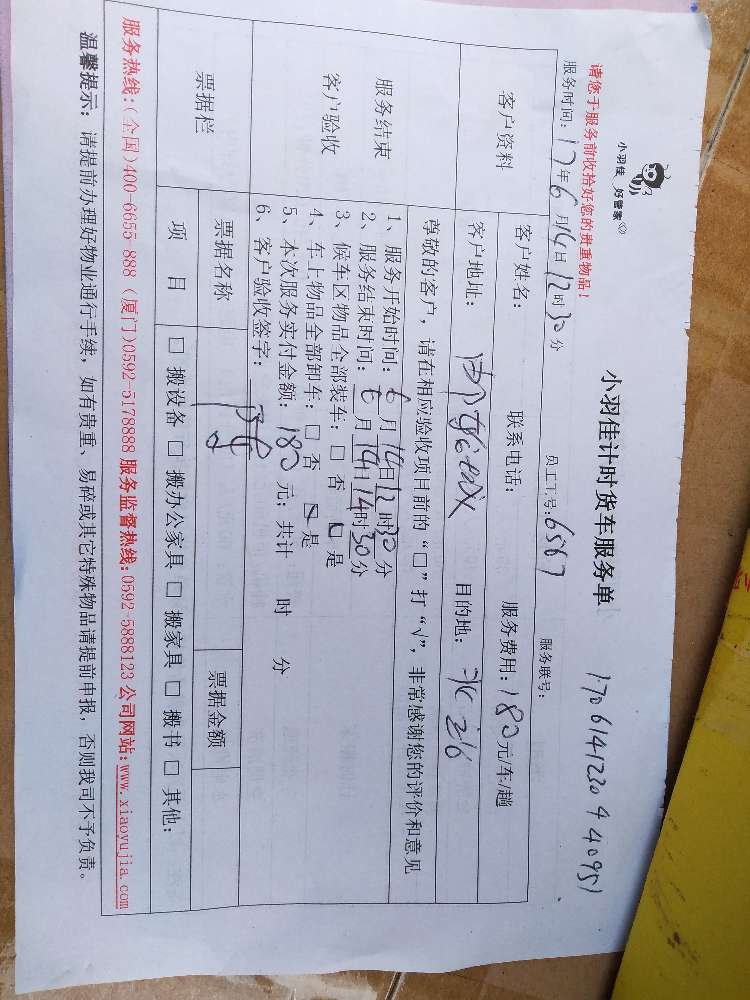 小羽佳 好管家
小羽佳计时货车服务单
170614123094 40951
请您于服务前收拾好您的贵重物品！
服务时间：17年6月14日12时30分 员工工号：6567 服务联号：
客户资料
客户姓名： 联系电话： 服务费用：180元/车/趟
客户地址： 目的地：
尊敬的客户，请在相应验收项目前的“□”打“√”，非常感谢您的评价和意见
服务结束
客户验收
1、服务开始时间：6月14日12时30分
2、服务结束时间：6月14日14时30分
3、候车区物品全部装车：□ 否 □ 是
4、车上物品全部卸车：□ 否 □ 是
5、本次服务实付金额：180元；共计 时 分
6、客户验收签字：
票据栏
票据名称 票据金额
项 目 □ 搬设备 □ 搬办公家具 □ 搬家具 □ 搬书 □ 其他：
服务热线：(全国)400-6655-888 (厦门)0592-5178888 服务监督热线：0592-5888123 公司网站：www.xiaoyujia.com
温馨提示：请提前办理好物业通行手续，如有贵重、易碎或其它特殊物品请提前申报，否则我司不予负责。